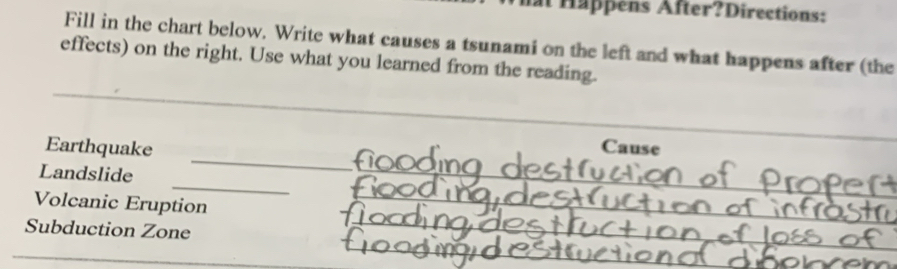 Happens After?Directions:
Fill in the chart below. Write what causes a tsunami on the left and what happens after (the
effects) on the right. Use what you learned from the reading.
Cause
Earthquake flooding destruction of propert
Landslide flooding, destruction of infrastru
Volcanic Eruption flooding, destruction of loss of
Subduction Zone flooding, destruction of